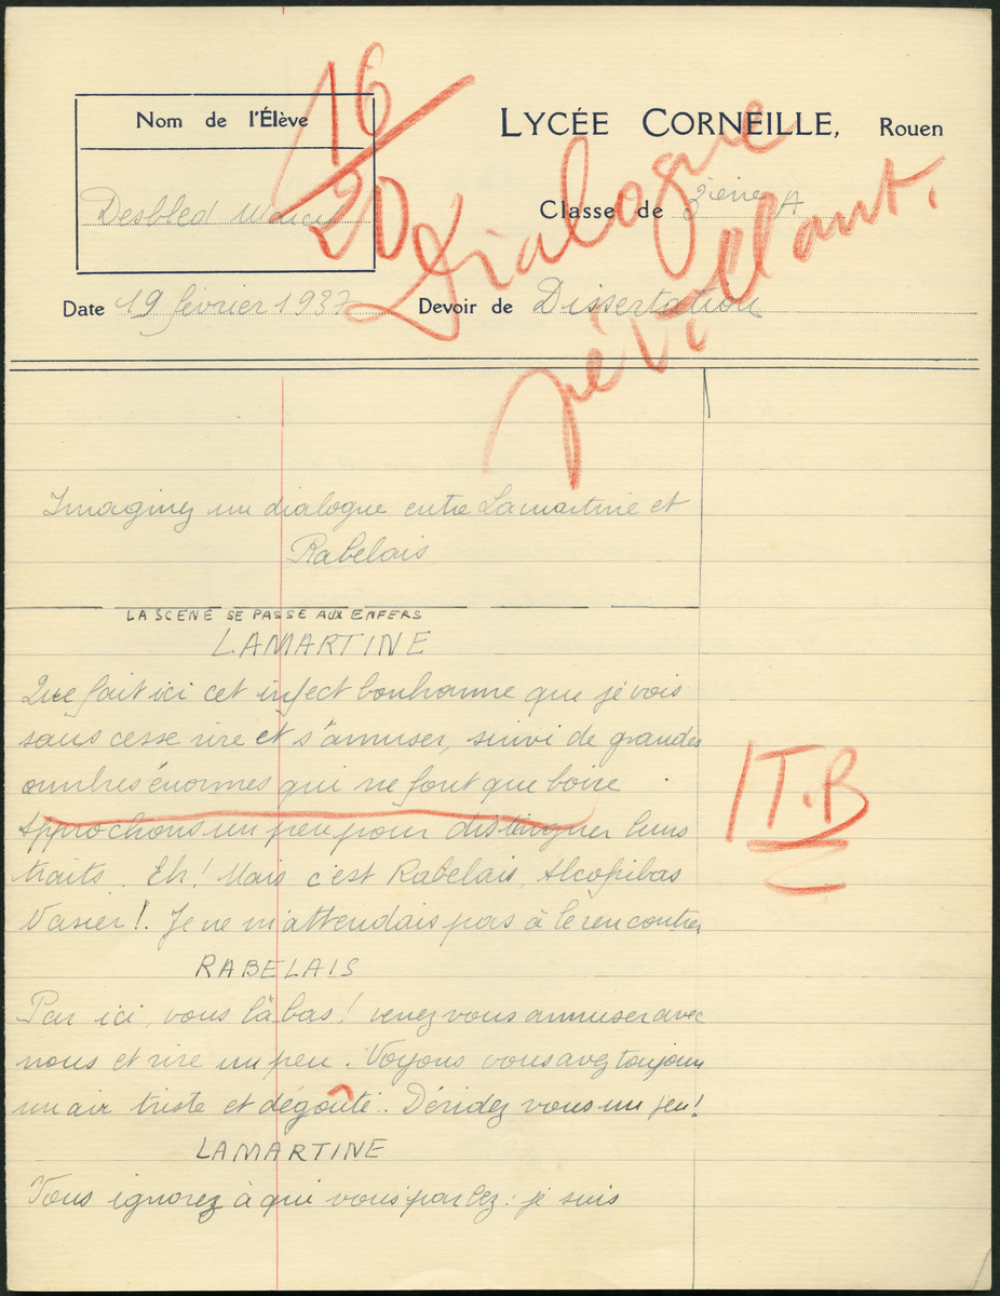 16/20
Dialogue
pétillant.
Nom de l'Élève
LYCÉE CORNEILLE, Rouen
Desbled
Classe de 3ième A
Date 19 février 1937
Devoir de Dissertation
Imaginez un dialogue entre Lamartine et
Rabelais
LA SCENE SE PASSE AUX ENFERS
LAMARTINE
Que fait ici cet infect bonhomme que je vois
sans cesse rire et s'amuser, suivi de grandes
ombres énormes qui ne font que boire
Approchons un peu pour distinguer leurs
traits. Eh! Mais c'est Rabelais, Alcofibas
Nasier!. Je ne m'attendais pas à le rencontrer
T.B
RABELAIS
Par ici, vous là bas! venez vous ammuser avec
nous et rire un peu. Voyons vous avez toujours
un air triste et dégoûté.. Déridez vous un peu!
LAMARTINE
Vous ignorez à qui vous parlez : je suis